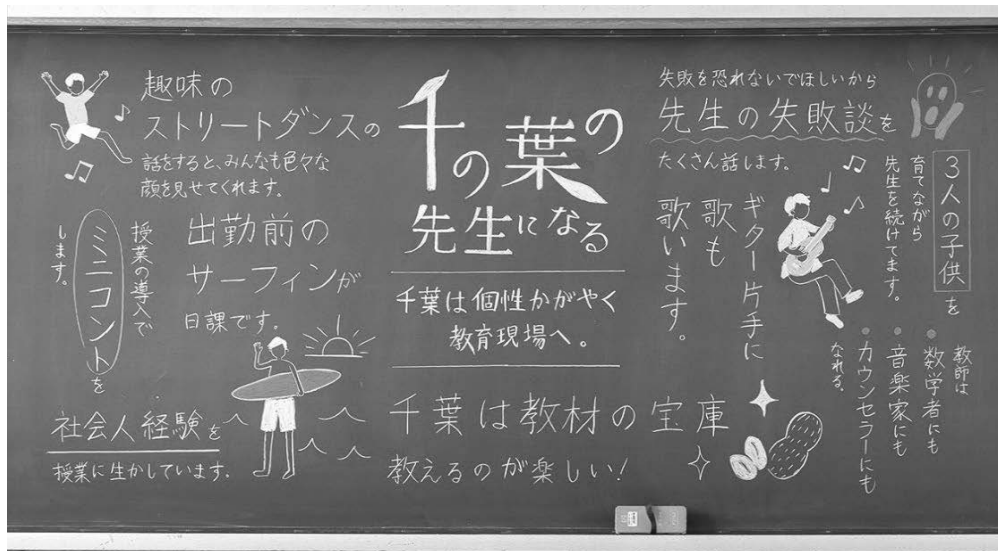 趣味の
ストリートダンスの
話をすると、みんなも色々な
顔を見せてくれます。
授業の導入で
ミニコントを
します。
出勤前の
サーフィンが
日課です。
社会人経験を
授業に生かしています。
千の葉の
先生になる
千葉は個性かがやく
教育現場へ。
千葉は教材の宝庫
教えるのが楽しい!
失敗を恐れないでほしいから
先生の失敗談を
たくさん話します。
ギター片手に
歌も
歌います。
3人の子供を
育てながら
先生を続けてます。
教師は
•数学者にも
•音楽家にも
•カウンセラーにも
なれる。